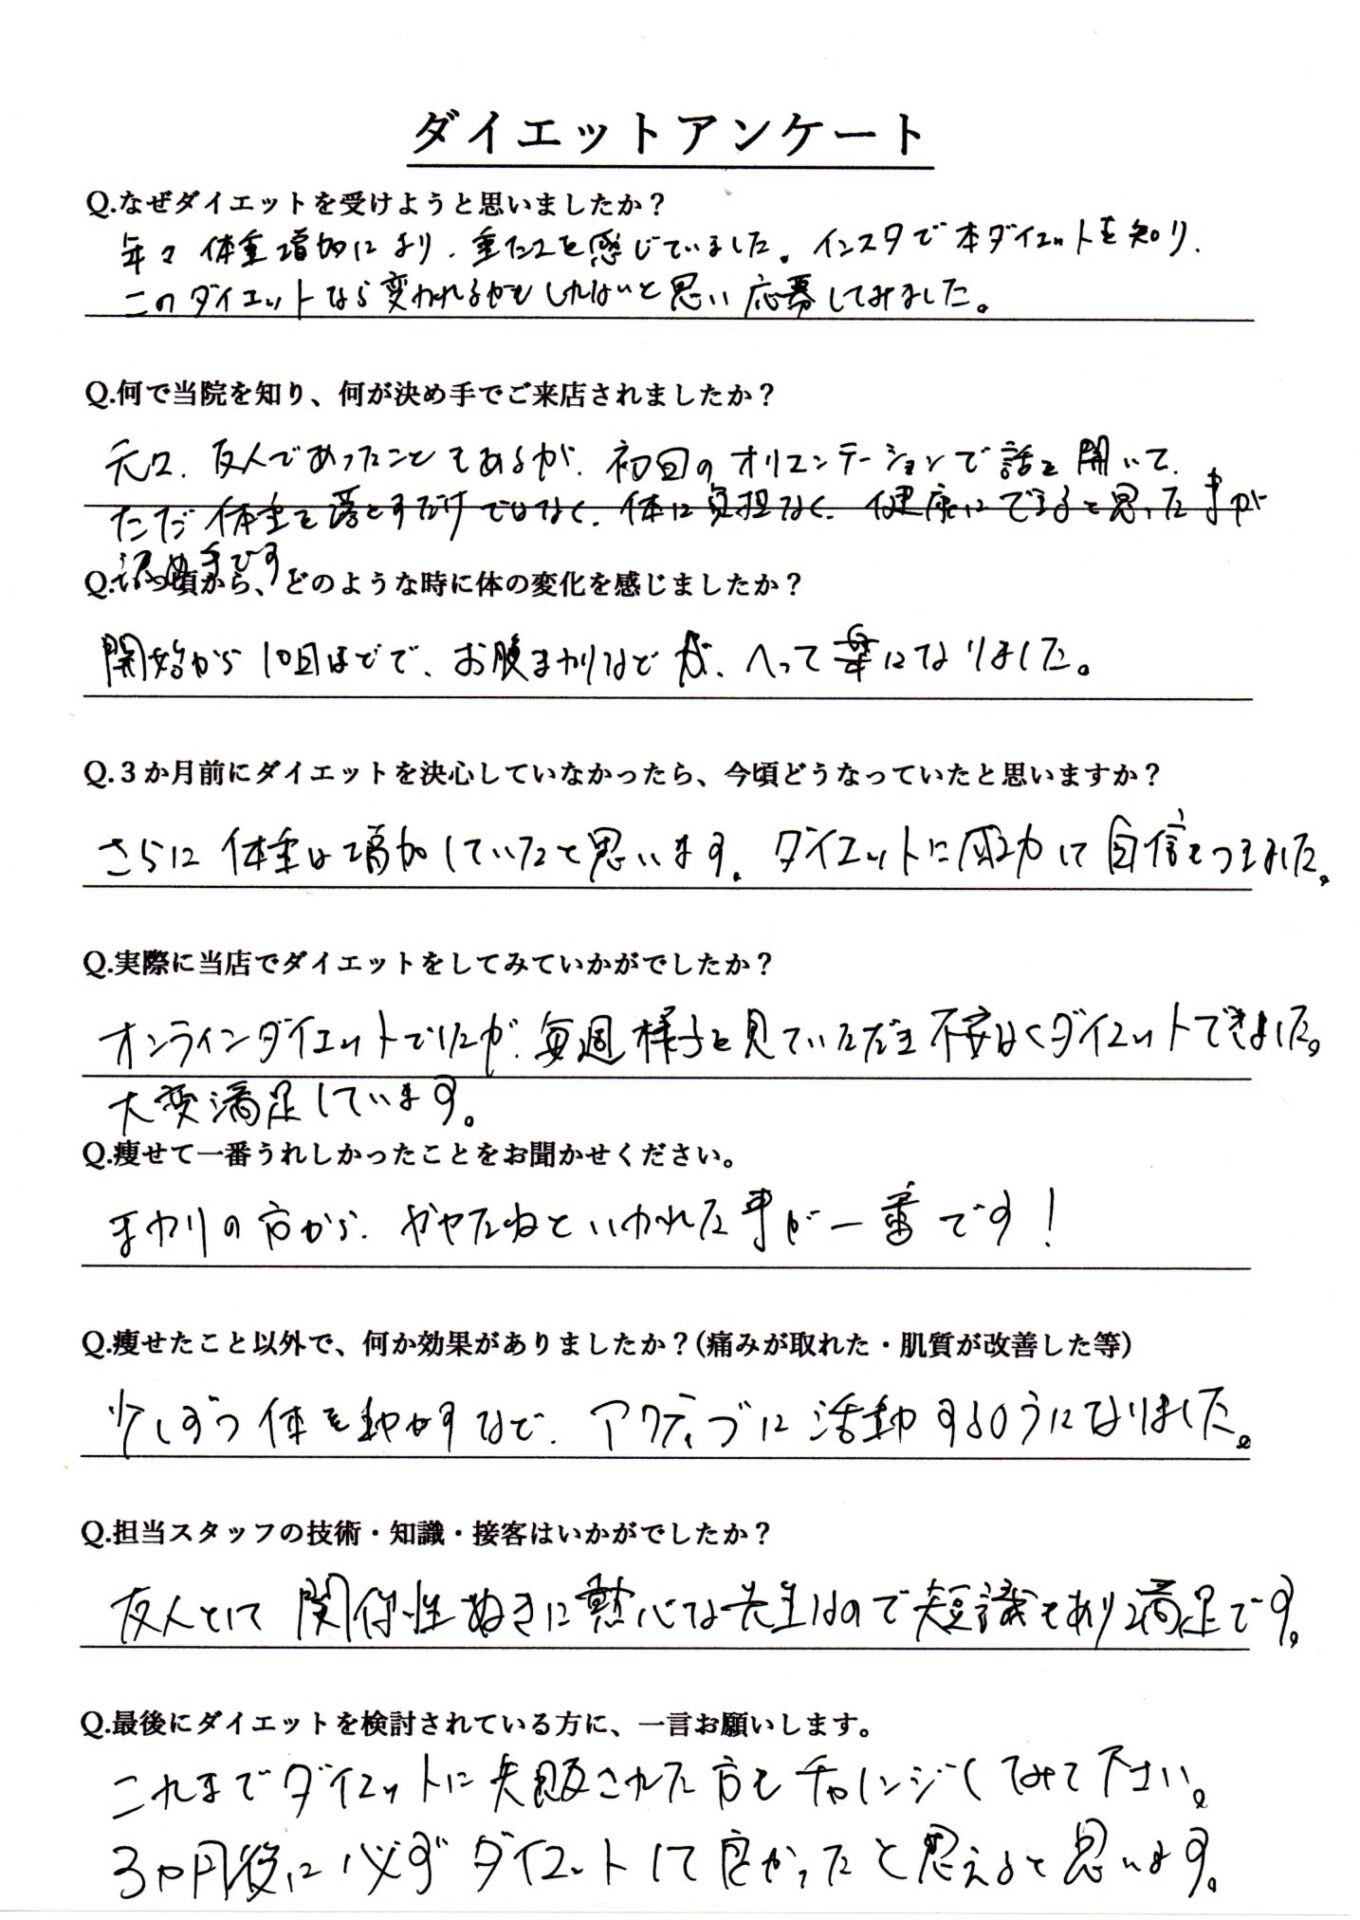 ダイエットアンケート
Q.なぜダイエットを受けようと思いましたか？
年々体重増加により、重たさを感じていました。インスタで本ダイエットを知り、
このダイエットなら変われるかもしれないと思い応募してみました。
Q.何で当院を知り、何が決め手でご来店されましたか？
元々、友人であったこともあるが、初回のオリエンテーションで話を聞いて、
ただ体重を落とすだけではなく、体に負担なく、健康にできると思った事が
決め手です
Q.いつ頃から、どのような時に体の変化を感じましたか？
開始から10回ほどで、お腹まわりなどが、へって楽になりました。
Q.３か月前にダイエットを決心していなかったら、今頃どうなっていたと思いますか？
さらに体重は増加していたと思います。ダイエットに成功して自信もつきました。
Q.実際に当店でダイエットをしてみていかがでしたか？
オンラインダイエットでしたが、毎週様子を見ていただき不安なくダイエットできました。
大変満足しています。
Q.痩せて一番うれしかったことをお聞かせください。
まわりの方から、やせたねといわれた事が一番です！
Q.痩せたこと以外で、何か効果がありましたか？(痛みが取れた・肌質が改善した等)
少しずつ体を動かすなど、アクティブに活動するようになりました。
Q.担当スタッフの技術・知識・接客はいかがでしたか？
友人として関係性ぬきに熱心な先生なので知識もあり満足です。
Q.最後にダイエットを検討されている方に、一言お願いします。
これまでダイエットに失敗された方もチャレンジしてみて下さい。
3ヶ月後に必ずダイエットして良かったと思えると思います。